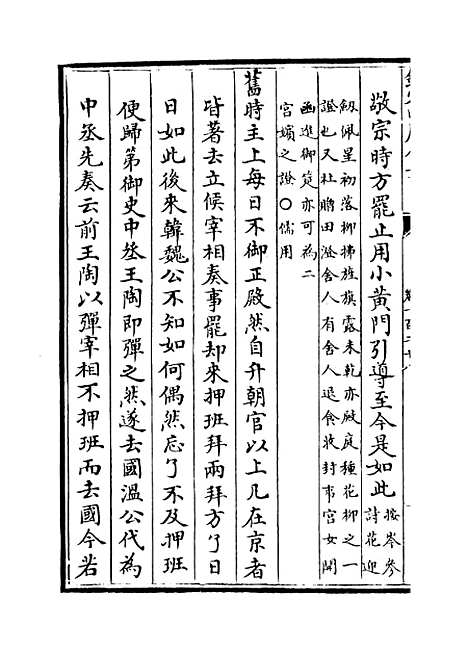 敬宗時方罷止用小黃門引導至今是如此
按岑參
詩花迎
劔佩星初落栁拂旌旗露未乾亦殿庭種花栁之一
證也又杜贈田澄舍人有舍人退食收封事宫女開
函進御筵亦可為二
宫嬪之證○儒用
舊時主上每日不御正殿然自升朝官以上凡在京者
皆著去立候宰相奏事罷却來押班拜兩拜方了日
日如此後來韓魏公不知如何偶然忘了不及押班
便歸第御史中丞王陶即彈之然遂去國溫公代為
中丞先奏云前王陶以彈宰相不押班而去國今若